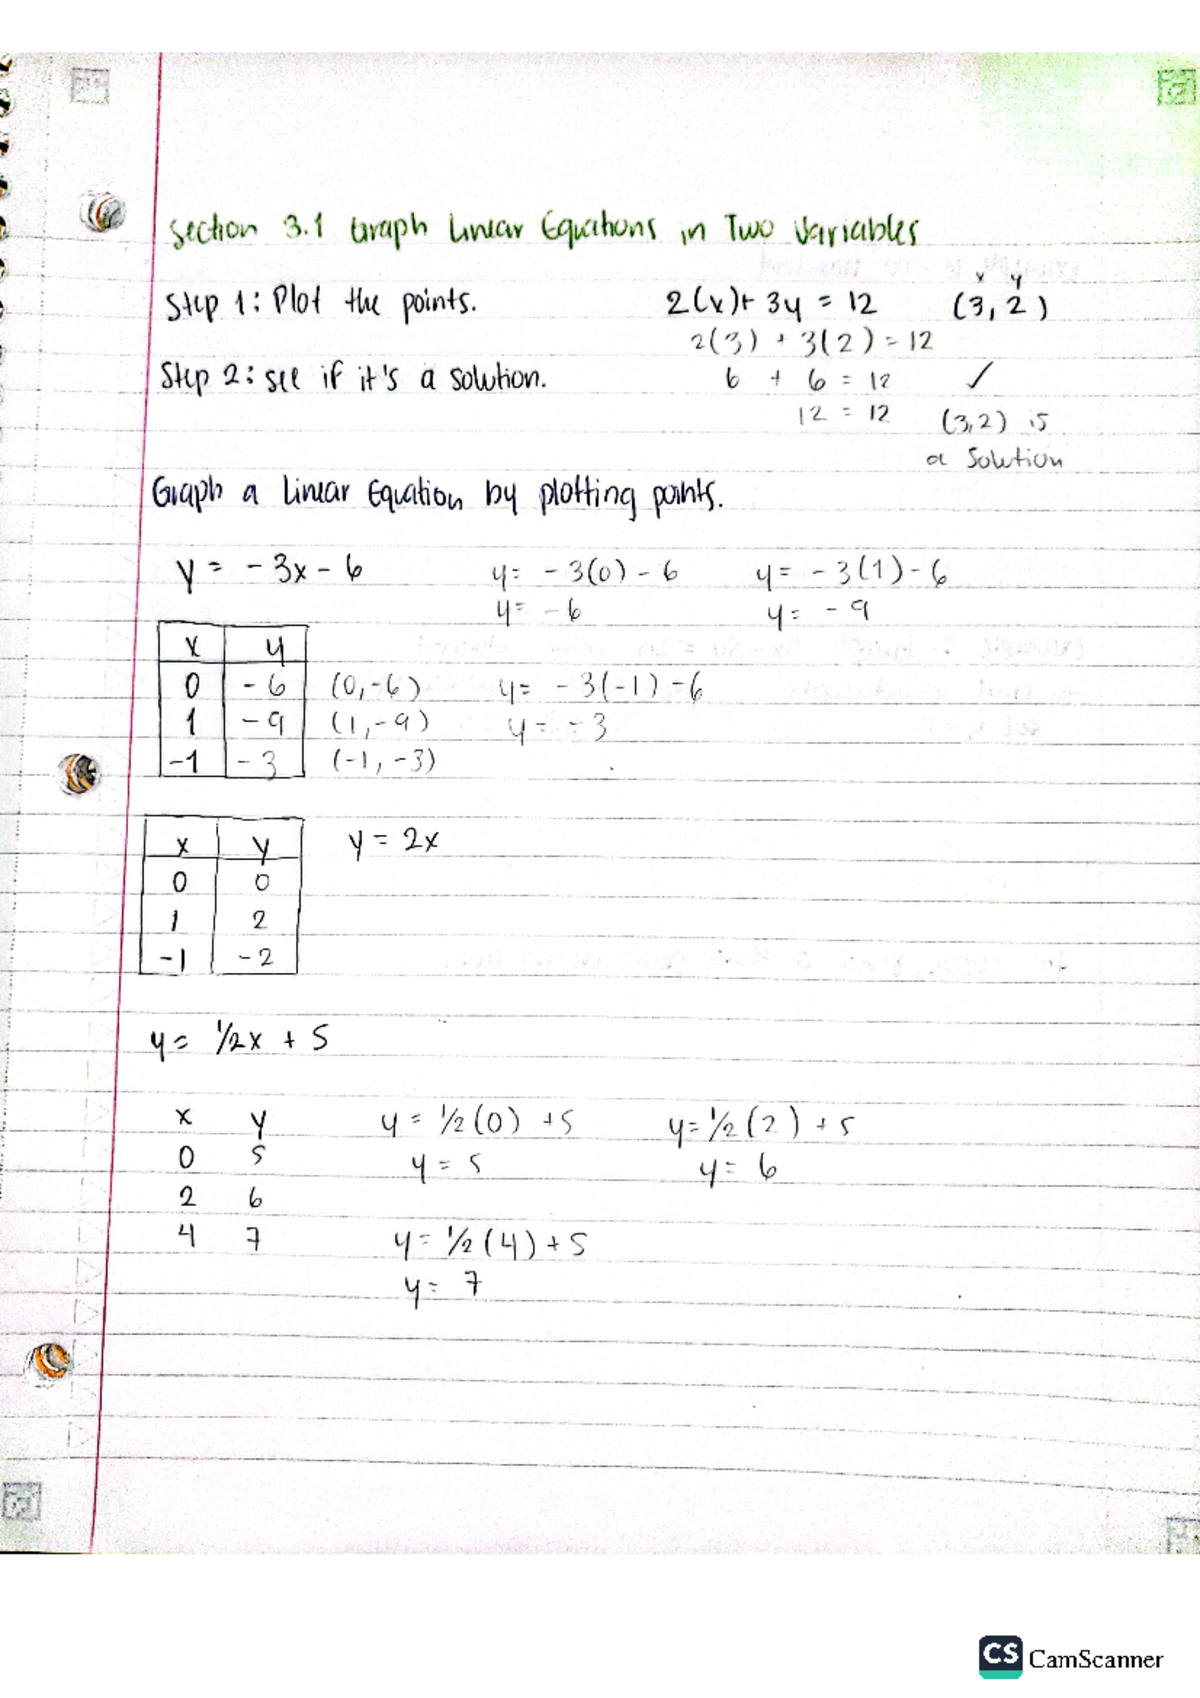 Section 3.1 Graph Linear Equations in Two Variables
x y
Step 1: Plot the points. 2(x)+ 3y = 12 (3, 2)
2(3) + 3(2) = 12
Step 2: see if it's a solution. 6 + 6 = 12 ✓
12 = 12 (3,2) is
a solution
Graph a Linear Equation by plotting points.
y = - 3x - 6 y = - 3(0) - 6 y = - 3(1) - 6
y = - 6 y = - 9
x y
0 - 6 (0,-6) y = - 3(-1) - 6
1 - 9 (1,-9) y = - 3
-1 - 3 (-1,-3)
x y y = 2x
0 0
1 2
-1 -2
y = 1/2x + 5
x y y = 1/2(0) + 5 y = 1/2(2) + 5
0 5 y = 5 y = 6
2 6
4 7 y = 1/2(4) + 5
y = 7
CS CamScanner